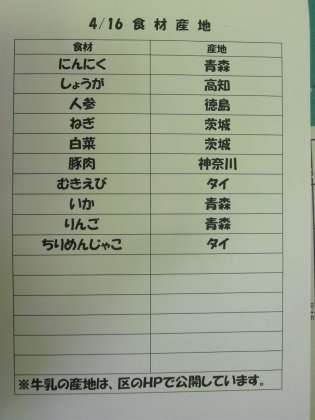 4/16 食材産地
食材 産地
にんにく 青森
しょうが 高知
人参 徳島
ねぎ 茨城
白菜 茨城
豚肉 神奈川
むきえび タイ
いか 青森
りんご 青森
ちりめんじゃこ タイ
※牛乳の産地は、区のHPで公開しています。